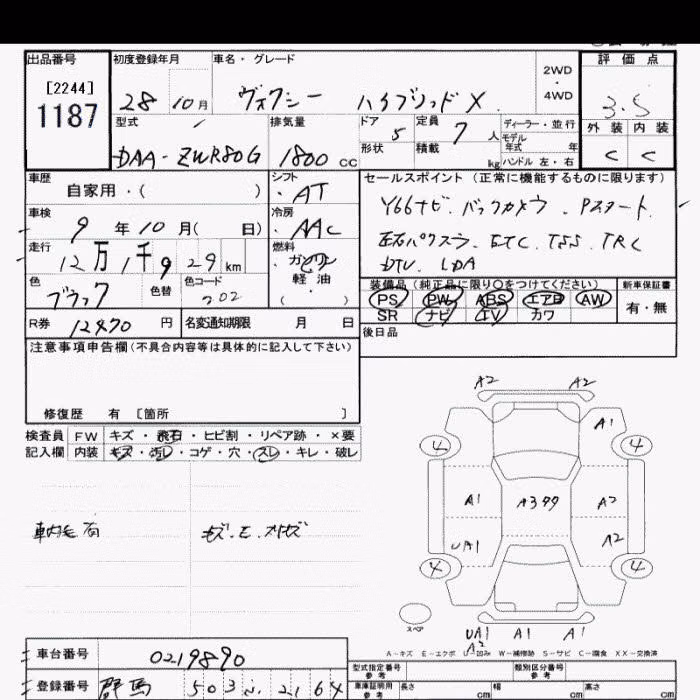 出品番号 初度登録年月 車名・グレード 評価点
[2244]
1187
28 10月 ヴォクシー ハイブリッドX
2WD
・
4WD
3.5
型式 排気量 ドア 定員 ディーラー・並行 外装 内装
DAA-ZWR80G 1800 CC 5 7人 モデル年式 年
形状 積載 kg ハンドル 左・右 C C
車歴 シフト セールスポイント(正常に機能するものに限ります)
自家用・( ) ・AT
車検 冷房 Y66ナビ.バックカメラ.Pスタート.
9年10月( 日) ・AAC
走行 燃料 左右パワスラ.ETC.TSS.TRC
12万1千9 29km ガソリン
軽油
・( )
DTV. LDA
色 色替 色コード 装備品(純正品に限り○をつけてください) 新車保証書
ブラック 202 PS PW ABS エアB AW 有・無
SR ナビ TV カワ
R券 12470円 名変通知期限 月 日 後日品
注意事項申告欄(不具合内容等は具体的に記入して下さい)
修復歴 有 [箇所 ]
検査員 FW キズ・飛石・ヒビ割・リペア跡・×要
記入欄 内装 キズ・汚レ・コゲ・穴・スレ・キレ・破レ
A2 A2
A1
4 4
A1 A399 A2
車内毛有 キズ.E.
UA1 A2
4 4
スペア
UA1 A1 A1
A2
A-キズ E-エクボ U-凹み W-補修跡 S-サビ C-腐食 XX-交換済
車台番号 0219890
型式指定番号 参考 類別区分番号 参考
登録番号 群馬 503 2164
車庫証明用 参考 長さ cm 幅 cm 高さ cm